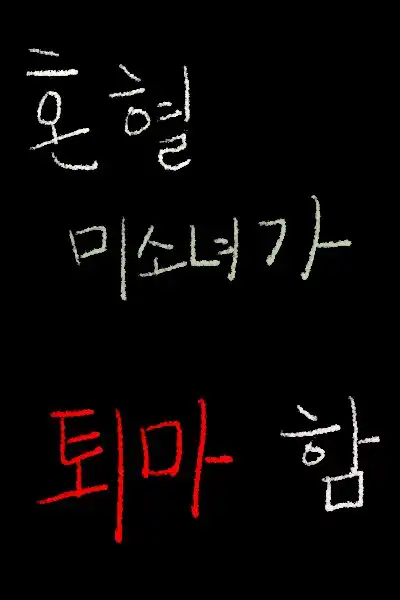 혼혈
미소녀가
퇴마 함